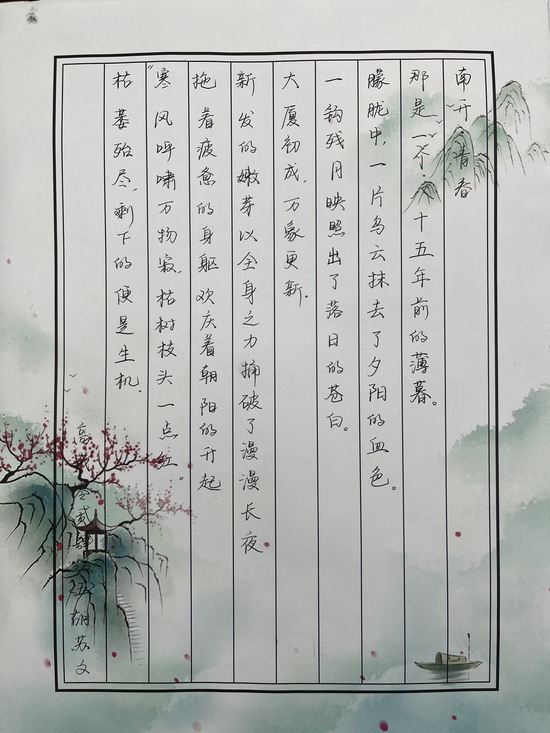 南开·青春
那是一个·十五年前的薄暮。
朦胧中,一片乌云抹去了夕阳的血色。
一钩残月映照出了落日的苍白。
大厦初成,万象更新.
新发的嫩芽以全身之力捅破了漫漫长夜
拖着疲惫的身躯欢庆着朝阳的升起
"寒风呼啸万物寂,枯树枝头一点红。
枯萎殆尽,剩下的便是生机.
高 零贰 五胡苏文